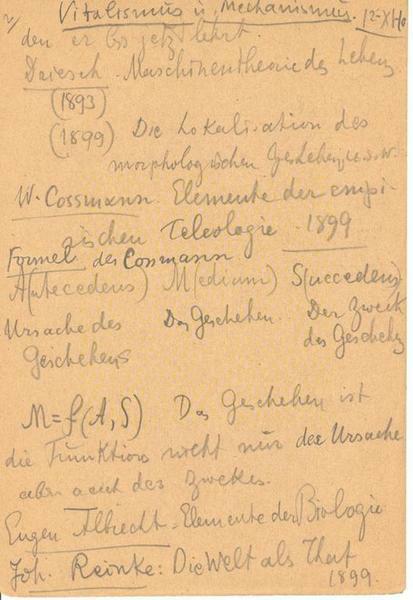 2/ Vitalismus u. Mechanismus. 12-XI
den er bis jetzt lehrt.
Driesch. Maschinentheorie des Lebens
(1893)
(1899) Die Lokalisation des
morphologischen Geschehens u.s.w.
W. Cossmann. Elemente der empi-
rischen Teleologie 1899
Formel des Cossmann
A(ntecedens) M(edium) S(uccedens)
Ursache des Das Geschehen. Der Zweck
Geschehens des Geschehens
M=f(A, S) Das Geschehen ist
die Funktion nicht nur der Ursache
aber auch des Zweckes.
Eugen Albrecht - Elemente der Biologie
Joh. Reinke: Die Welt als That
1899.